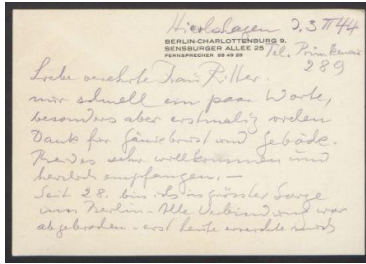 Hierlshagen 2.3.44
BERLIN-CHARLOTTENBURG 9,
SENSBURGER ALLEE 25
FERNSPRECHER 99 49 25
Tel. Primkenau
289
Liebe verehrte Frau Ritter.
nur schnell ein paar Worte,
besonders aber erstmalig vielen
Dank für Gänsebrust und Gebäck.
Beides sehr willkommen und
herzlich empfangen. —
Seit 28. bin ich in grösster Sorge
um Berlin – Alle Verbindung war
abgebrochen – erst heute mich